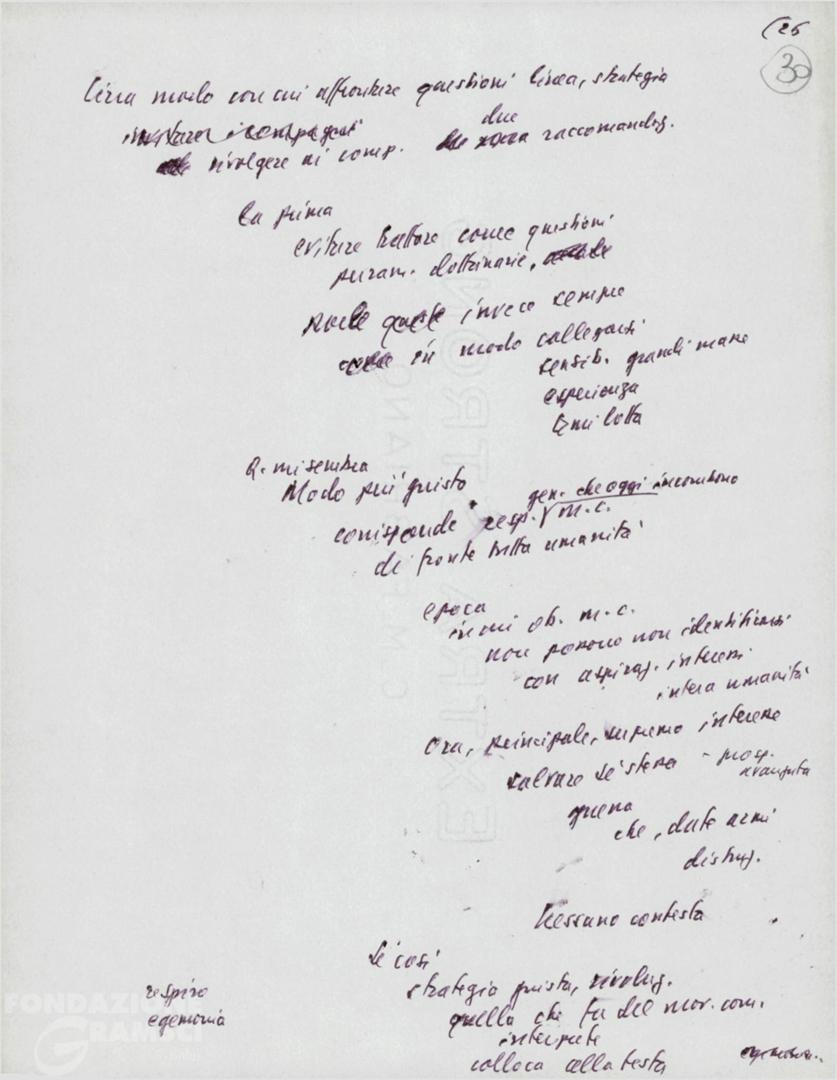 (26
30
Circa modo con cui affrontare questioni linea, strategia
invitare i compagni
due
rivolgere ai comp. raccomandaz.
la prima
evitare trattare come questioni
puram. dottrinarie,
invece sempre
in modo collegarsi
sensib. grandi masse
esperienza
loro lotta
Q. mi sembra
Modo più giusto
gen. che oggi incombono
corrisponde resp. m.c.
di fronte tutta umanità
epoca
in cui ob. m.c.
non possono non identificarsi
con aspiraz. interessi
intera umanità
Ora, principale, supremo interesse
salvare sé stessa - prosp.
avanzata
guerra
che, date armi
distruz.
Nessuno contesta
Se così
strategia giusta, rivoluz.
respiro
egemonia
quella che fa del mov. com.
interprete
colloca alla testa
FONDAZIONE
GRAMSCI
EXTRA STRONG